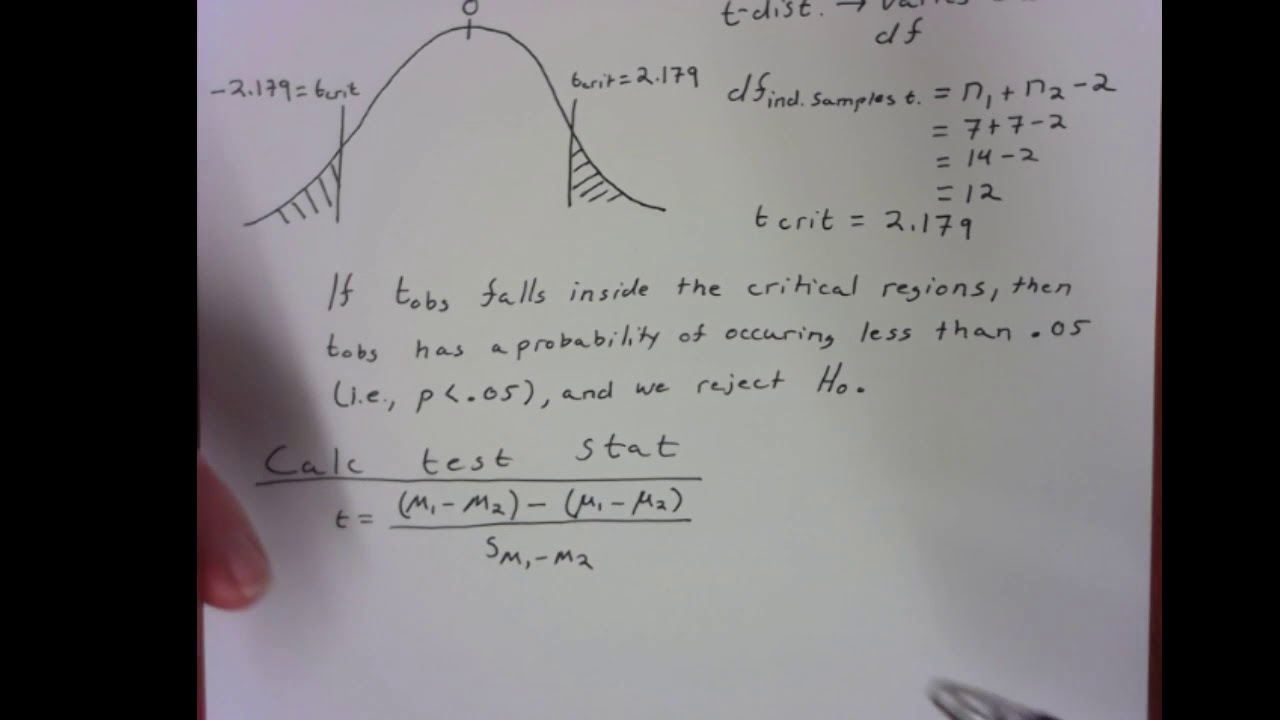 0
t-dist. →
df
-2.179 = tcrit
tcrit = 2.179
df ind. samples t. = n₁ + n₂ - 2
= 7+7-2
= 14-2
= 12
t crit = 2.179
If tobs falls inside the critical regions, then
tobs has a probability of occuring less than .05
(i.e., p < .05), and we reject H₀.
Calc test stat
t = (M₁ - M₂) - (μ₁ - μ₂)
S M₁ - M₂